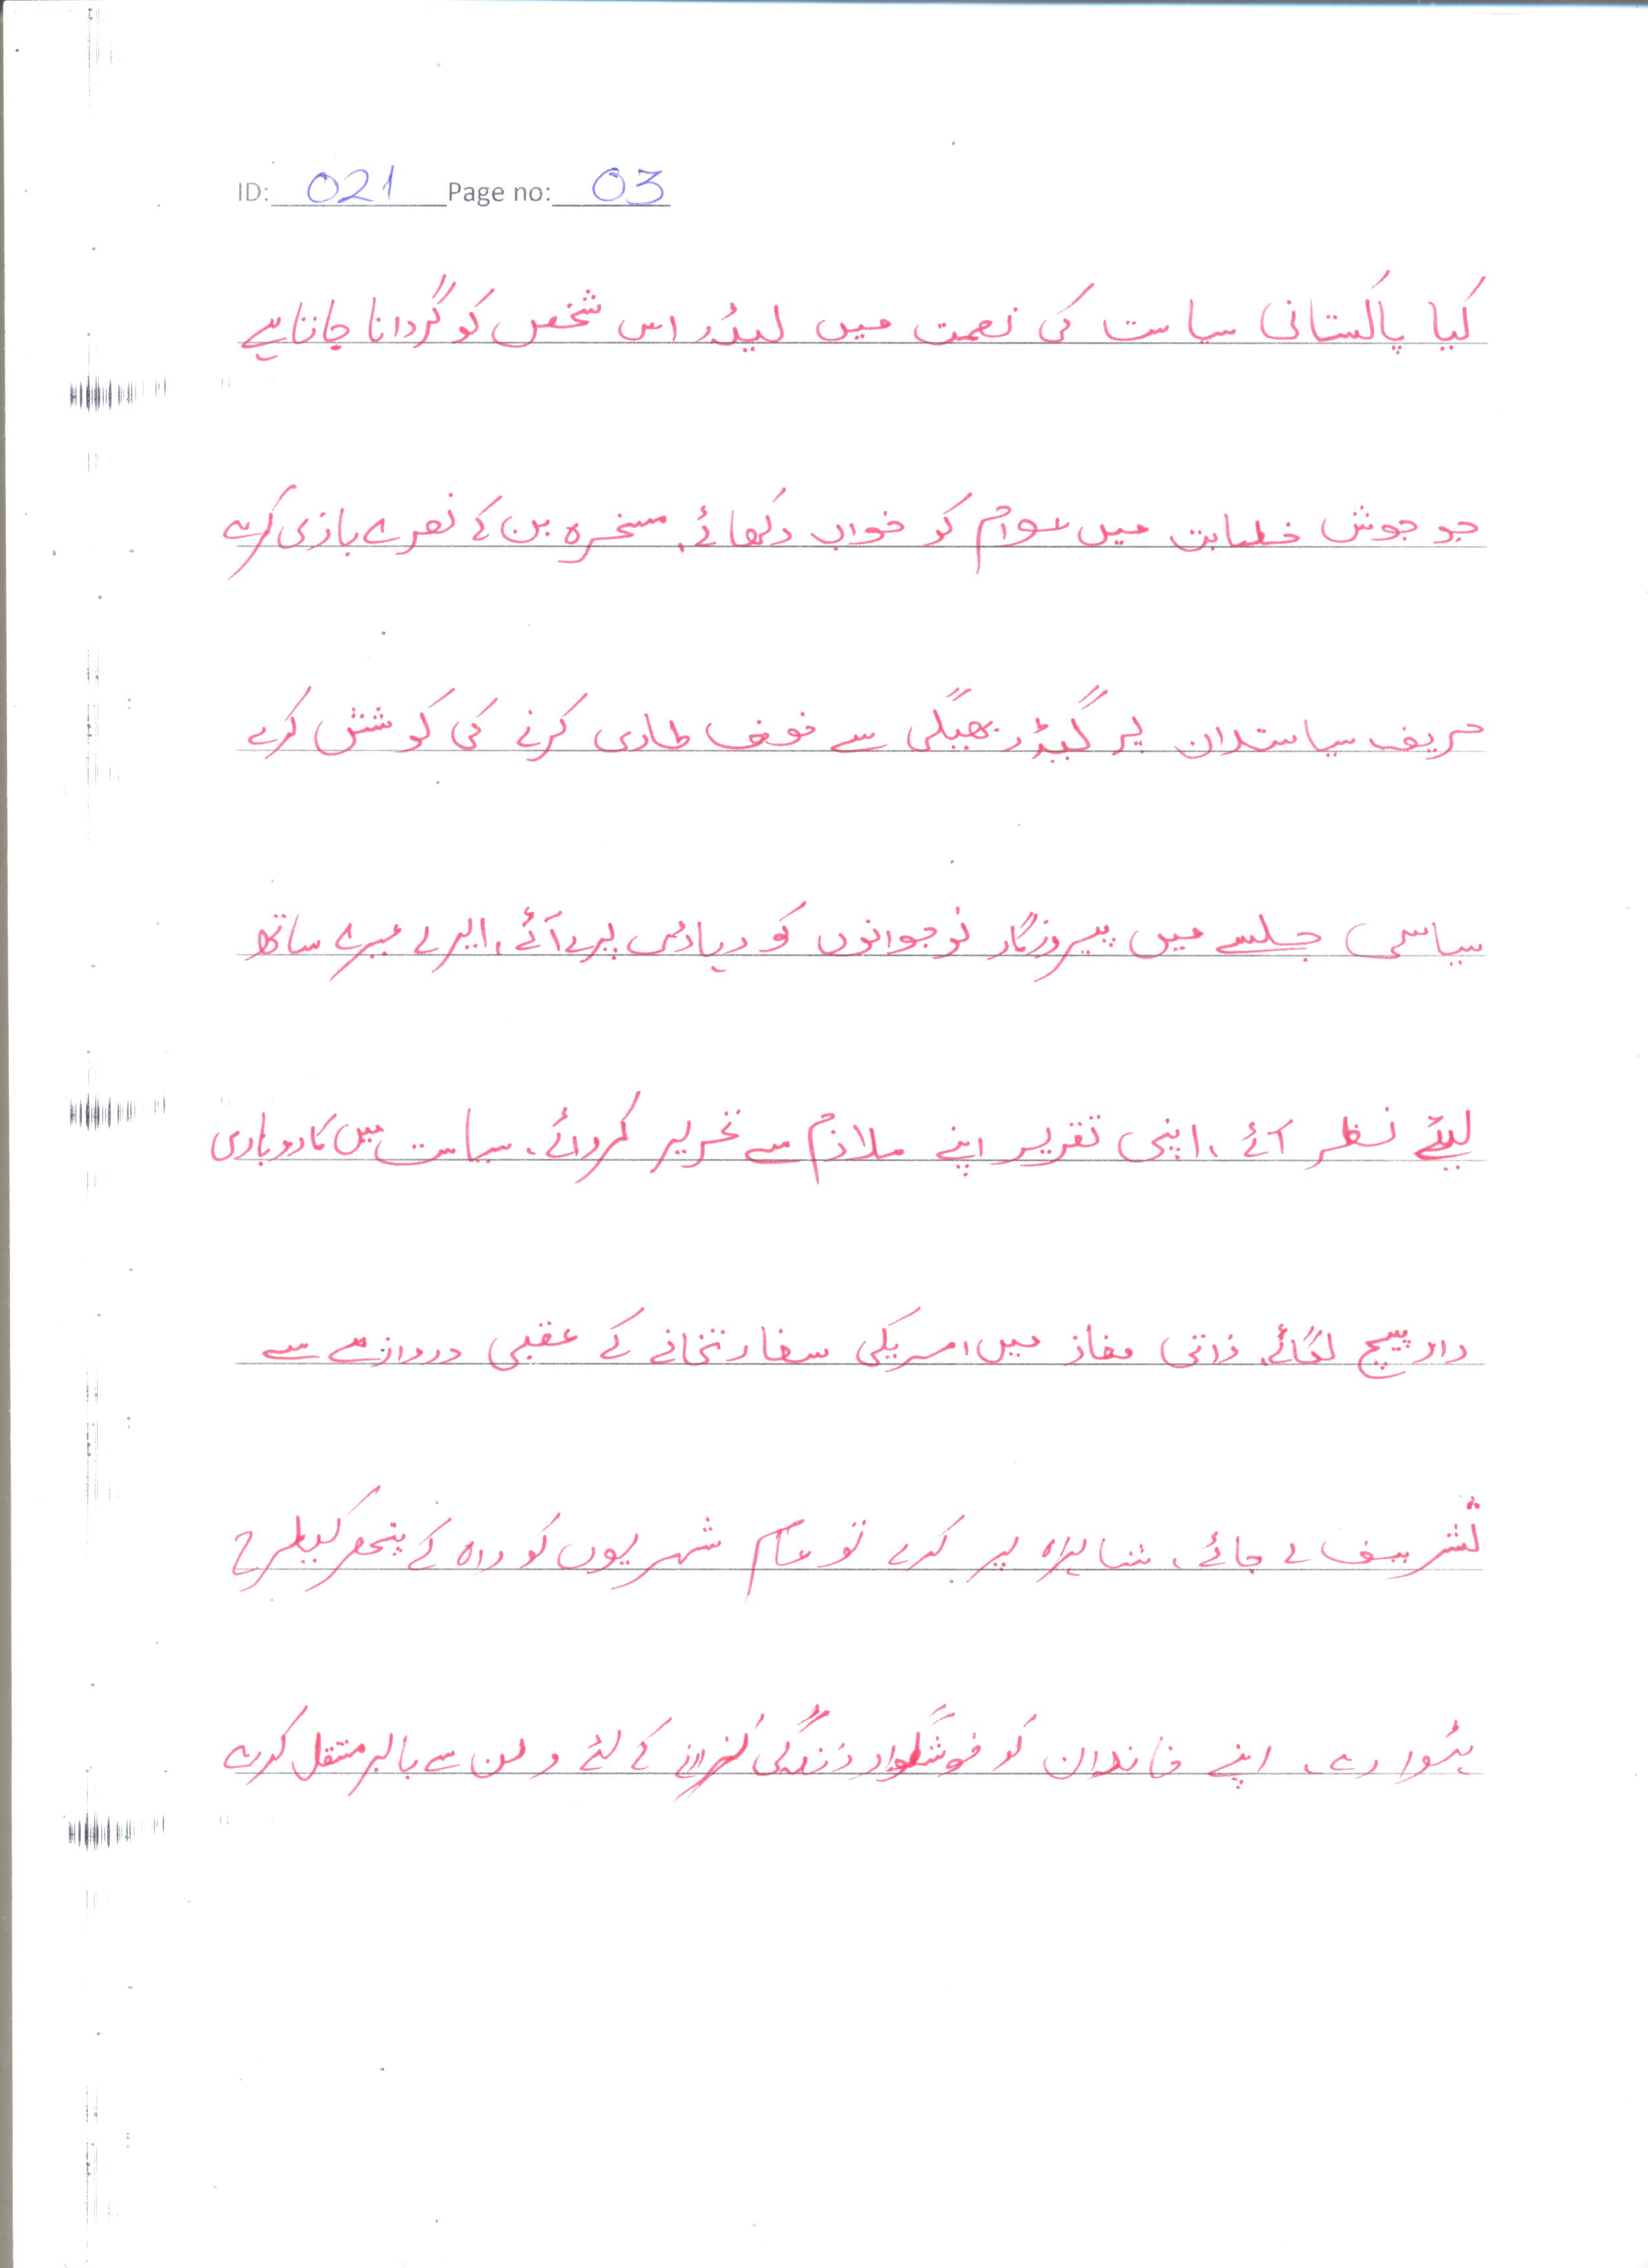 ID: 021 Page no: 03
کیا پاکستانی سیاست کی نعمت میں لیڈر اس شخص کو گردانا جاتا ہے
جو جوش خطابت میں عوام کو خواب دکھائے، مسخرہ بن کے نعرے بازی کرے
حریف سیاستدان پر گیڈر بھبگی سے خوف طاری کرنے کی کوشش کرے
سیاسی جلسے میں بیروزگار نوجوانوں کو دیہاڑی پر لے آئے، ایرے غیرے ساتھ
لیئے نظر آئے، اپنی تقریر اپنے ملازم سے تحریر کروائے، سیاست میں کاروباری
داو پیچ لگائے، ذاتی مفاد میں امریکی سفارتخانے کے عقبی دروازے سے
تشریف لے جائے، شاہراہ پر کرے تو عام شہریوں کو راہ کے پتھر کیطرح
ہٹوا دے، اپنے خاندان کو خوشگوار زندگی گزرانے کے لئے وطن سے باہر منتقل کرے